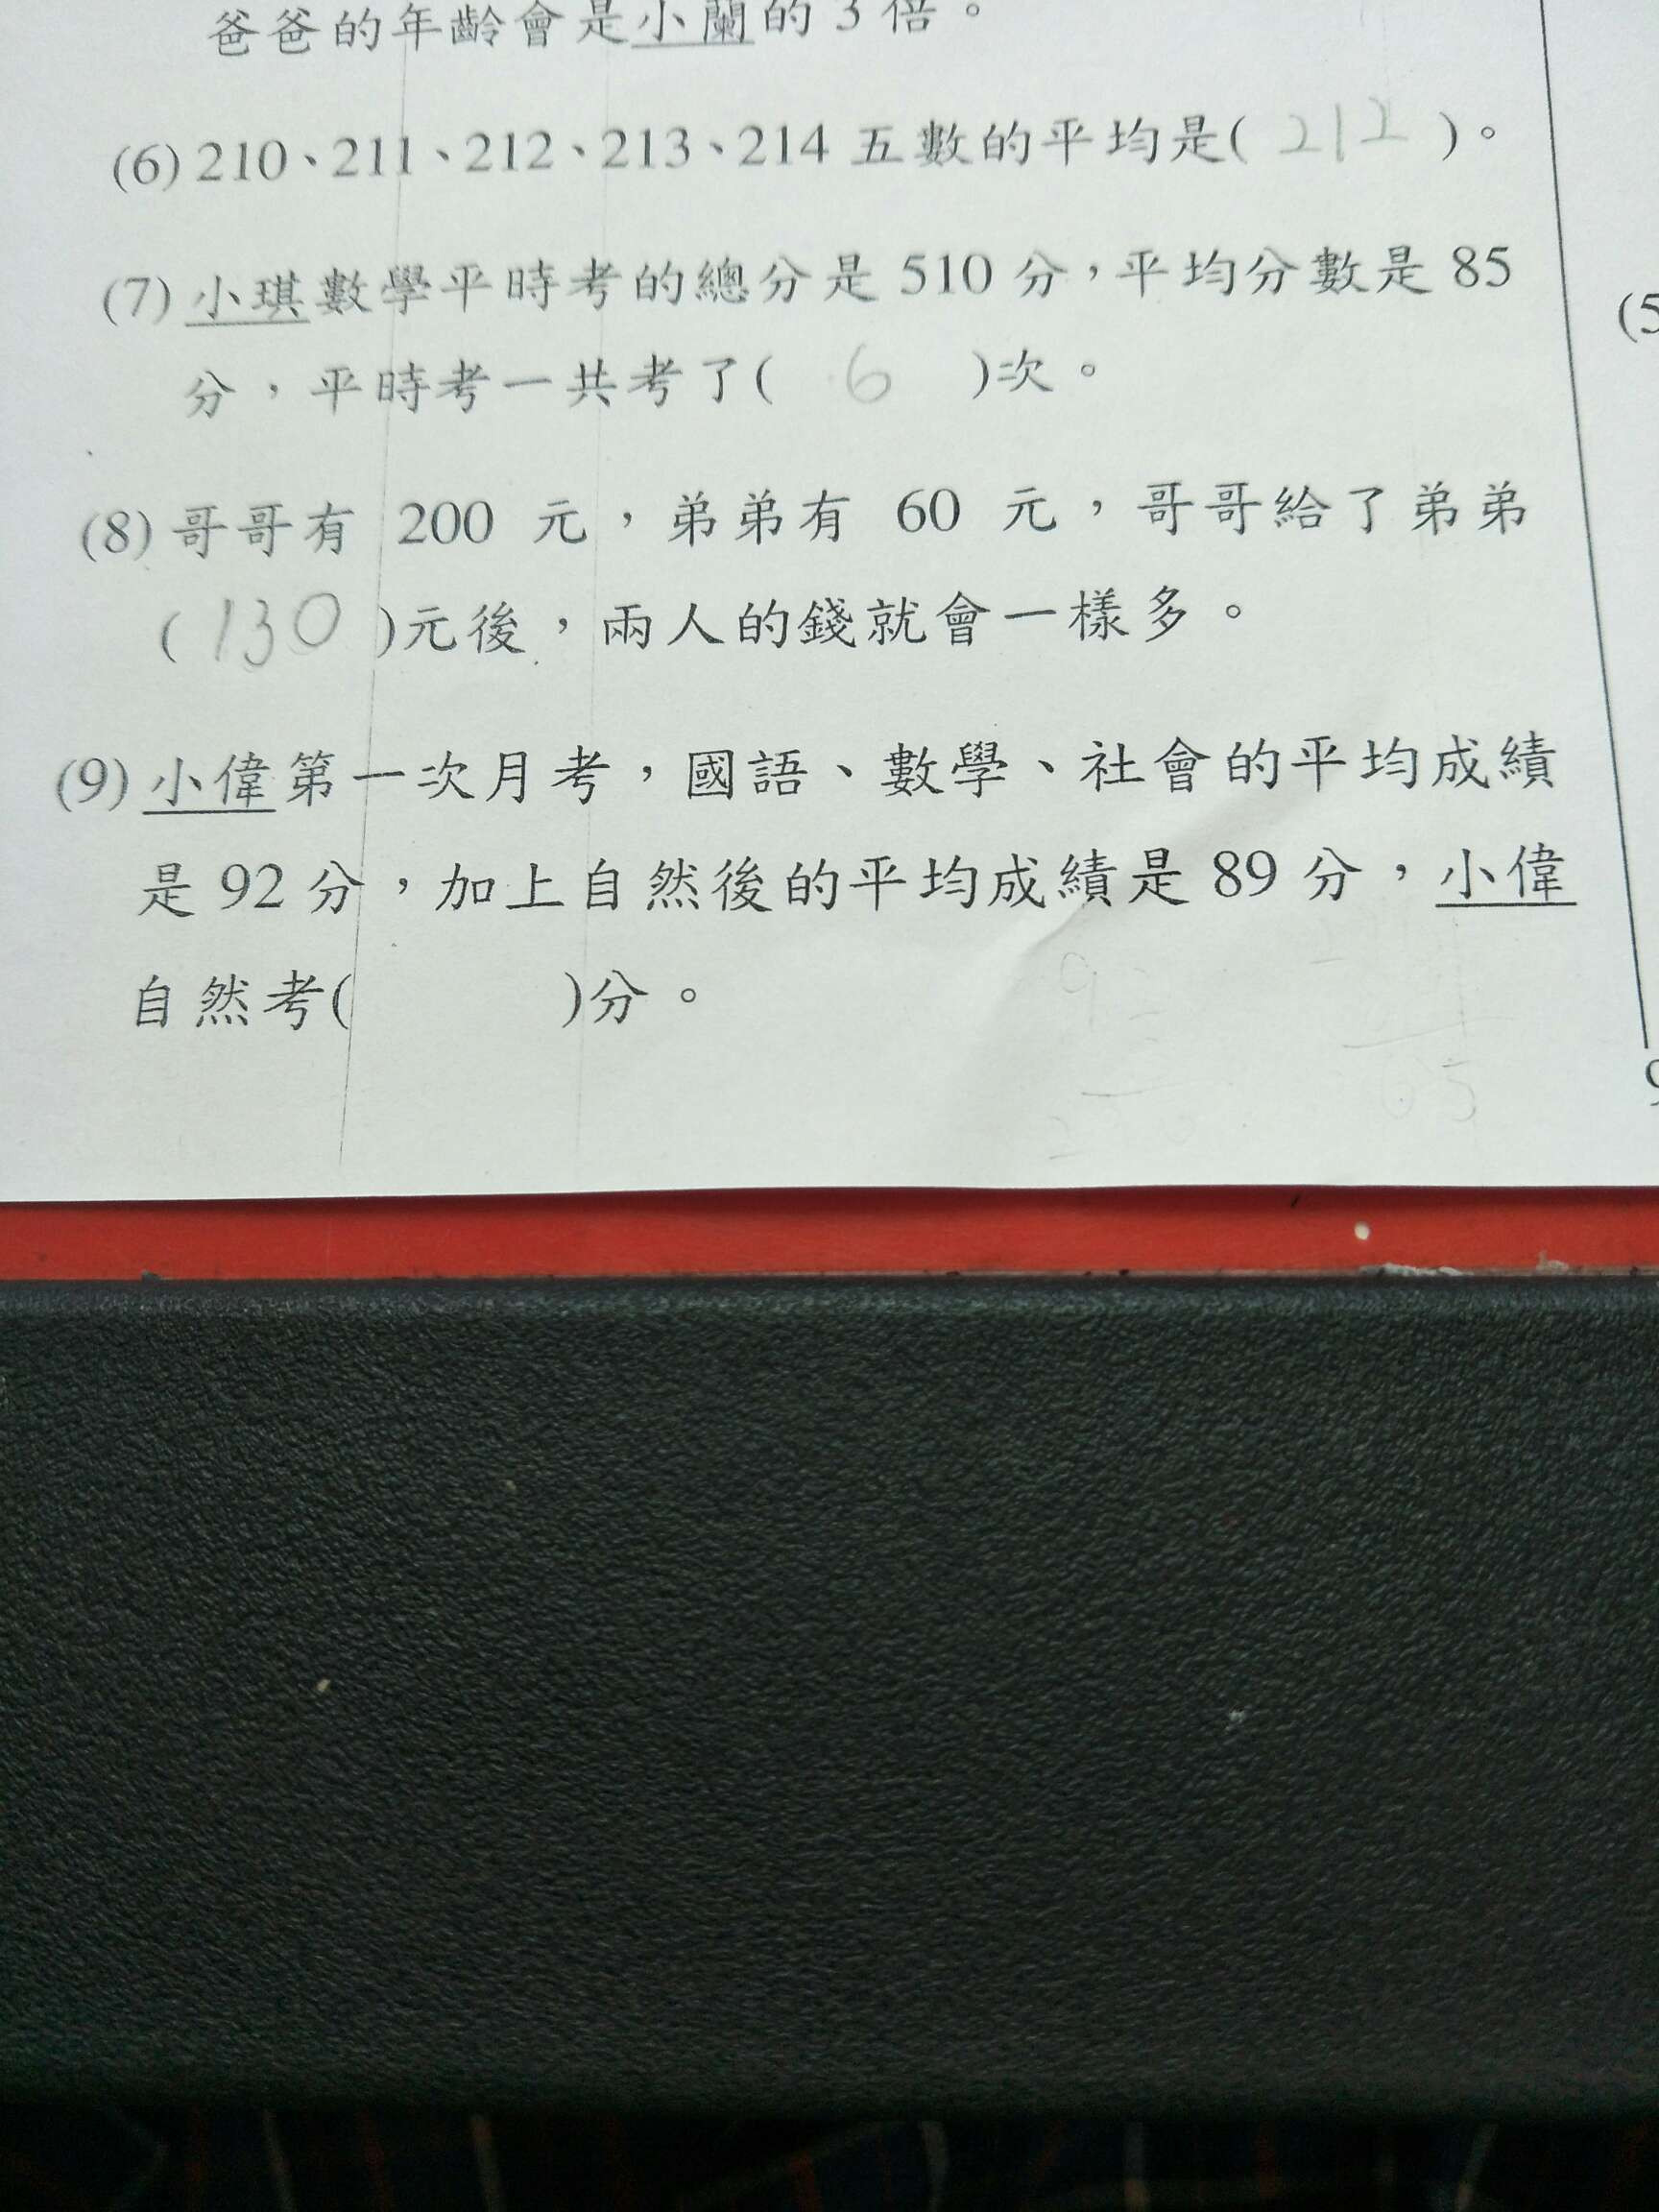 爸爸的年齡會是小蘭的3倍。
(6) 210、211、212、213、214 五數的平均是( 212 )。
(7) 小琪數學平時考的總分是 510 分，平均分數是 85
分，平時考一共考了( 6 )次。
(8) 哥哥有 200 元，弟弟有 60 元，哥哥給了弟弟
( 130 )元後，兩人的錢就會一樣多。
(9) 小偉第一次月考，國語、數學、社會的平均成績
是 92 分，加上自然後的平均成績是 89 分，小偉
自然考( )分。
(5